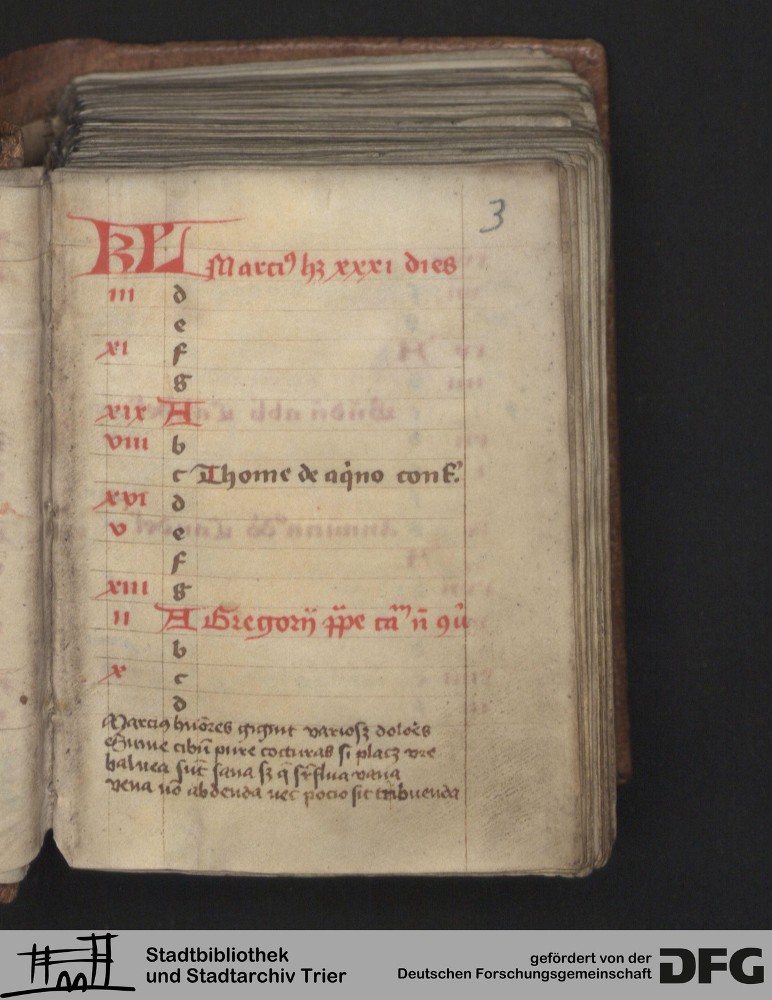 3
KL Marciꝰ hꝫ xxxi dies
iii d
e
xi f
g
xix A
viii b
c Thome de aq̇no conf.
xvi d
v e
f
xiii g
ii A Gregorij p̅p̅e
b
x c
d
Marciꝰ humo᷑es gignit variosqꝫ dolo᷑es
Sume cibū pure cocturas si placꝫ vre
balnea sūt sana sꝫ q̄ suꝑflua vana
vena nō abdenda nec pocio sit tribuenda
Stadtbibliothek
und Stadtarchiv Trier
gefördert von der
Deutschen Forschungsgemeinschaft
DFG